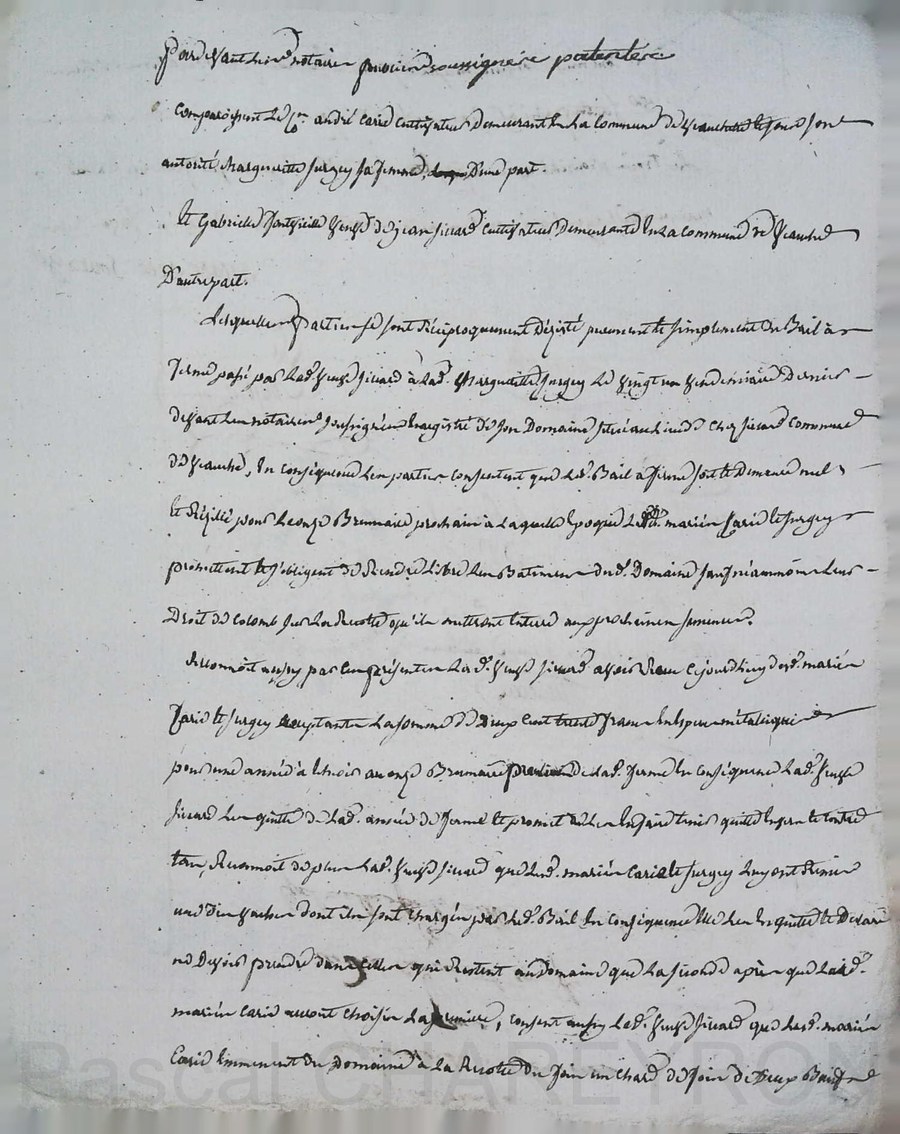 Pardevant les notaires publics soussignés patentés
Comparoissent le Cen andré Carié Cultivateur demeurant en La Commune de veauche et sous son
autorité Marguerite Jurgey sa femme, d'une part.
et Gabrielle veuve de jean sivard Cultivateur demeurante en La Commune de veauche
D'autre part.
Lesquelles Parties se sont réciproquement désisté purement et simplement du Bail à
ferme passé par Lad. veuve sivard à Lad. Marguerite Jurgey Le vingt un vendemiaire Dernier
devant Les notaires soussignés Enregistré de son Domaine situé au Lieu de chez sivard Commune
de veauche, En conséquence Les parties consentent que led. Bail à ferme soit et demeure nul
et Résillé pour Le onze Brumaire prochain à Laquelle époque Lesd. mariés Carié et Jurgey
promettent et s'obligent de Rendre Libre Les Batiments dud. Domaine sauf néammoins Leur
Droit de Colomb sur La Recolte qu'ils mettront en terre aux prochaines semences.
Reconnoit aussy par Ces présentes Lad. veuve sivard avoir Reçu cejourdhuy desd. mariés
Carié et Jurgey acceptants La somme de deux cent trente francs En Espèces métalliques
pour une année à échoir au onze Brumaire prochain De lad. ferme En Conséquence Lad. veuve
sivard Les quitte de Lad. année de ferme et promet de Les En faire tenir quitte Envers et contre
tous, Reconnoit de plus Lad. veuve sivard que Lesd. mariés Carié et Jurgey Luy ont Remis
une des vaches dont ils sont chargés par Led. Bail En Conséquence Elle Les En quitte et Déclare
ne Devoir prendre dans Celles qui Restent au domaine que La seconde après que Lesd.
mariés Carié auront choisi La première, consent aussy Lad. veuve sivard que Lesd. mariés
Carié Emmenent du Domaine à La Recolte du foin un chard de foin de deux Bœufs
Pascal CHAREYRON